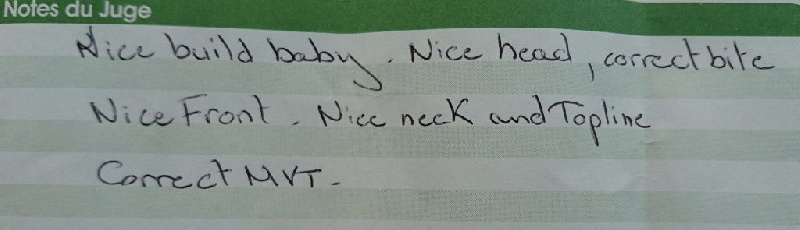 Notes du Juge
Nice build baby. Nice head, correct bite
Nice Front. Nice neck and Topline
Correct MVT.